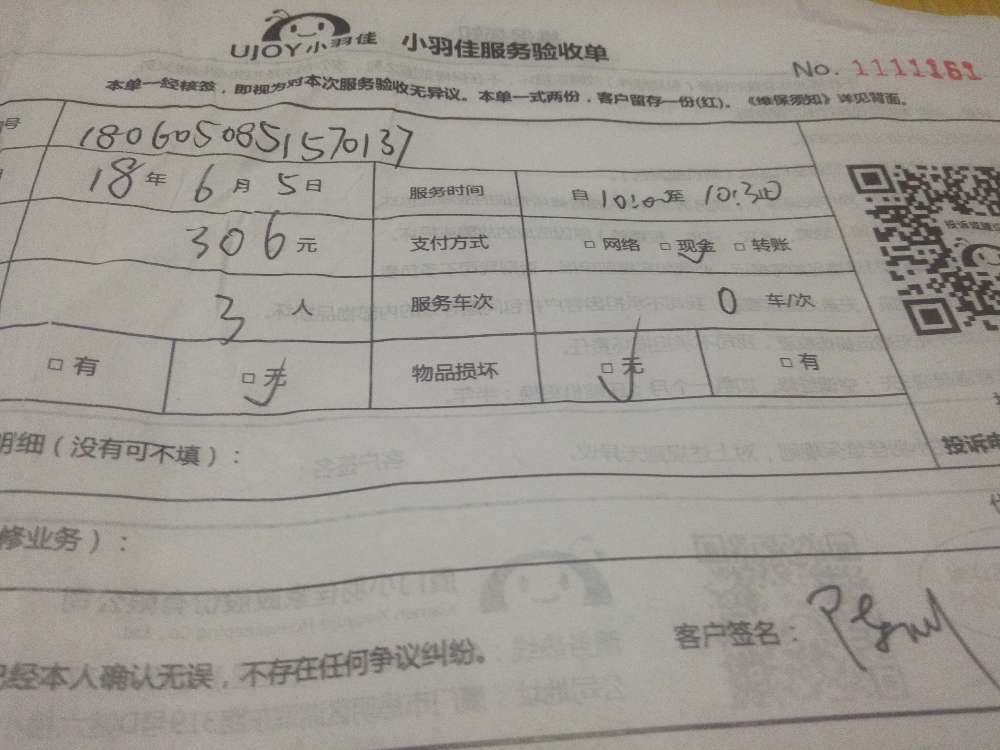 UJOY小羽佳 小羽佳服务验收单
No. 1111161
本单一经核签，即视为对本次服务验收无异议。本单一式两份，客户留存一份(红)。《维保须知》详见背面。
号 1806050851570137
18年 6月 5日 服务时间 自10:00至10:30
306元 支付方式 □网络 □现金 □转账
3人 服务车次 0车/次
□有 □无 物品损坏 □无 □有
明细（没有可不填）：
投诉
修业务）：
已经本人确认无误，不存在任何争议纠纷。
客户签名：